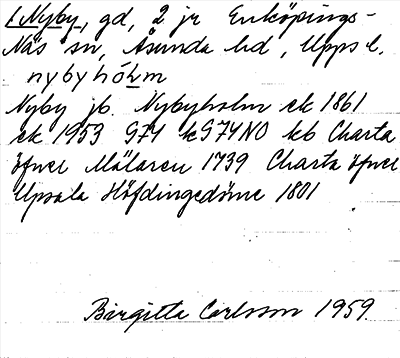 1 Nyby, gd, 2 jr Enköpings-
Näs sn, Åsunda hd, Upps l.
nybyhólm
Nyby jb. Nybyholm ek 1861
ek 1953 G74 kG74NO kb Charta
öfver Mälaren 1739 Charta öfver
Upsala Höfdingedöme 1801
Birgitta Carlsson 1959.